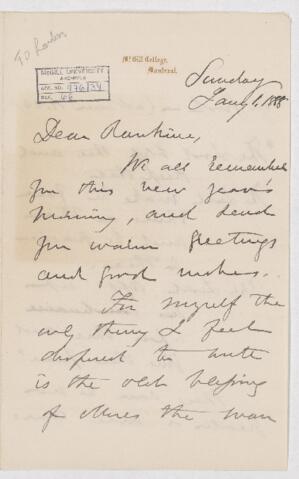 To Rankine
McGill College,
Montreal.
McGILL UNIVERSITY
ARCHIVES
ACC. NO.
REF.
Sunday
Jany 1, 1888
Dear Rankine,
We all remember
you this new years
morning, and send
you warm greetings
and good wishes.
For myself the
only thing I feel
disposed to write
is the old blessing
of Moses the man